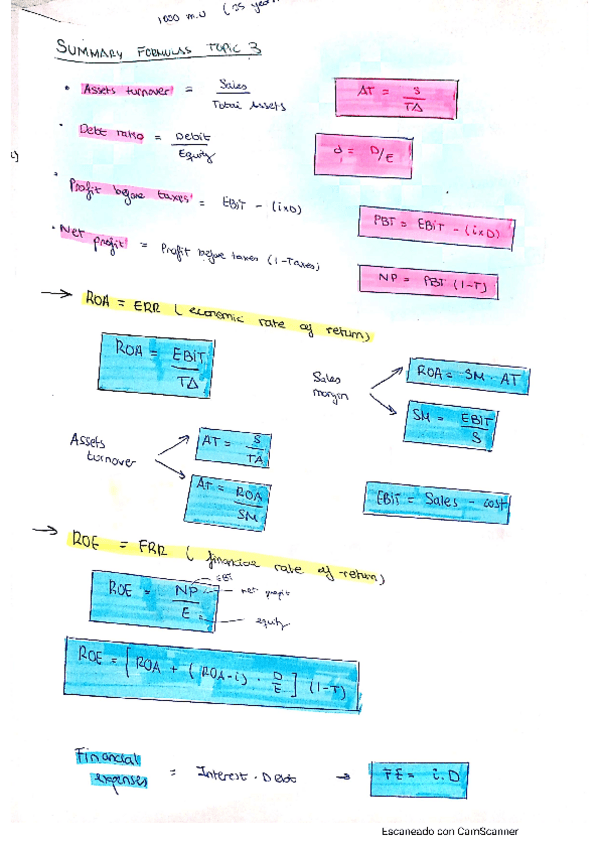 1000 m.u (25 year
SUMMARY FORMULAS TOPIC 3
• Assets turnover = Sales / Total Assets AT = S / TA
• Debt ratio = Debit / Equity d = D/E
• Profit before taxes = EBiT - (i×D) PBT = EBiT - (i×D)
• Net profit = Profit before taxes (1-Taxes) NP = PBT (1-T)
→ ROA = ERR (economic rate of return)
ROA = EBiT / TA
Sales margin
ROA = SM · AT
SM = EBiT / S
Assets turnover
AT = S / TA
AT = ROA / SM
EBiT = Sales - cost
→ ROE = FRR (financial rate of return)
ROE = NP / E
net profit
equity
ROE = [ROA + (ROA-i) · D/E] (1-T)
Financial expenses = Interest · Debt → FE = i.D
Escaneado con CamScanner